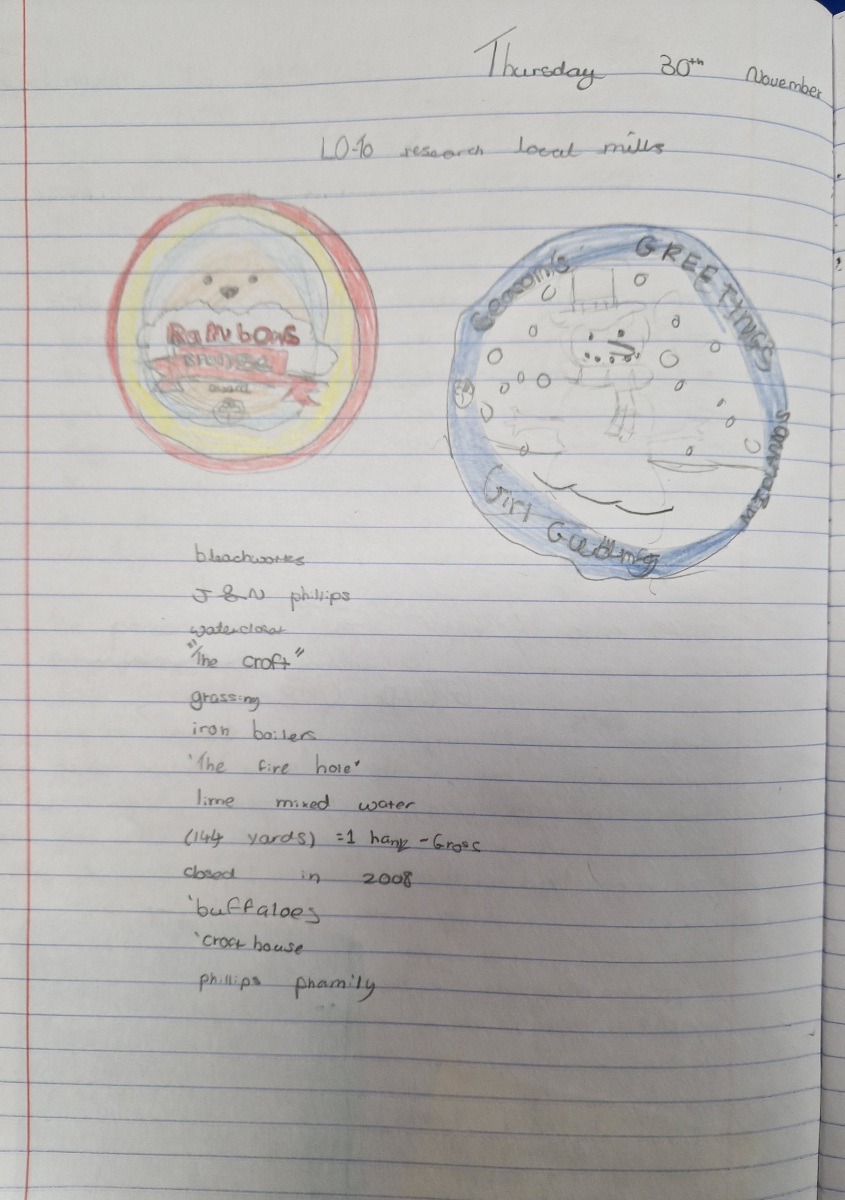 Thursday 30th November
LO-To research local mills
RAINBOWS
BRONZE
award
Season's GREETINGS
Girl Guiding
bleachworks
J & N phillips
watercloset
"The croft"
grassing
iron boilers
'The fire hole'
lime mixed water
(144 yards) =1 hank - Gross
closed in 2008
'buffaloes
'croft house
phillips phamily